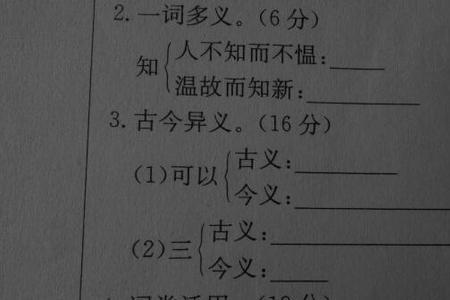 2. 一词多义。(6分)
知
人不知而不愠:
温故而知新:
3. 古今异义。(16分)
(1)可以
古义:
今义:
(2)三
古义:
今义: